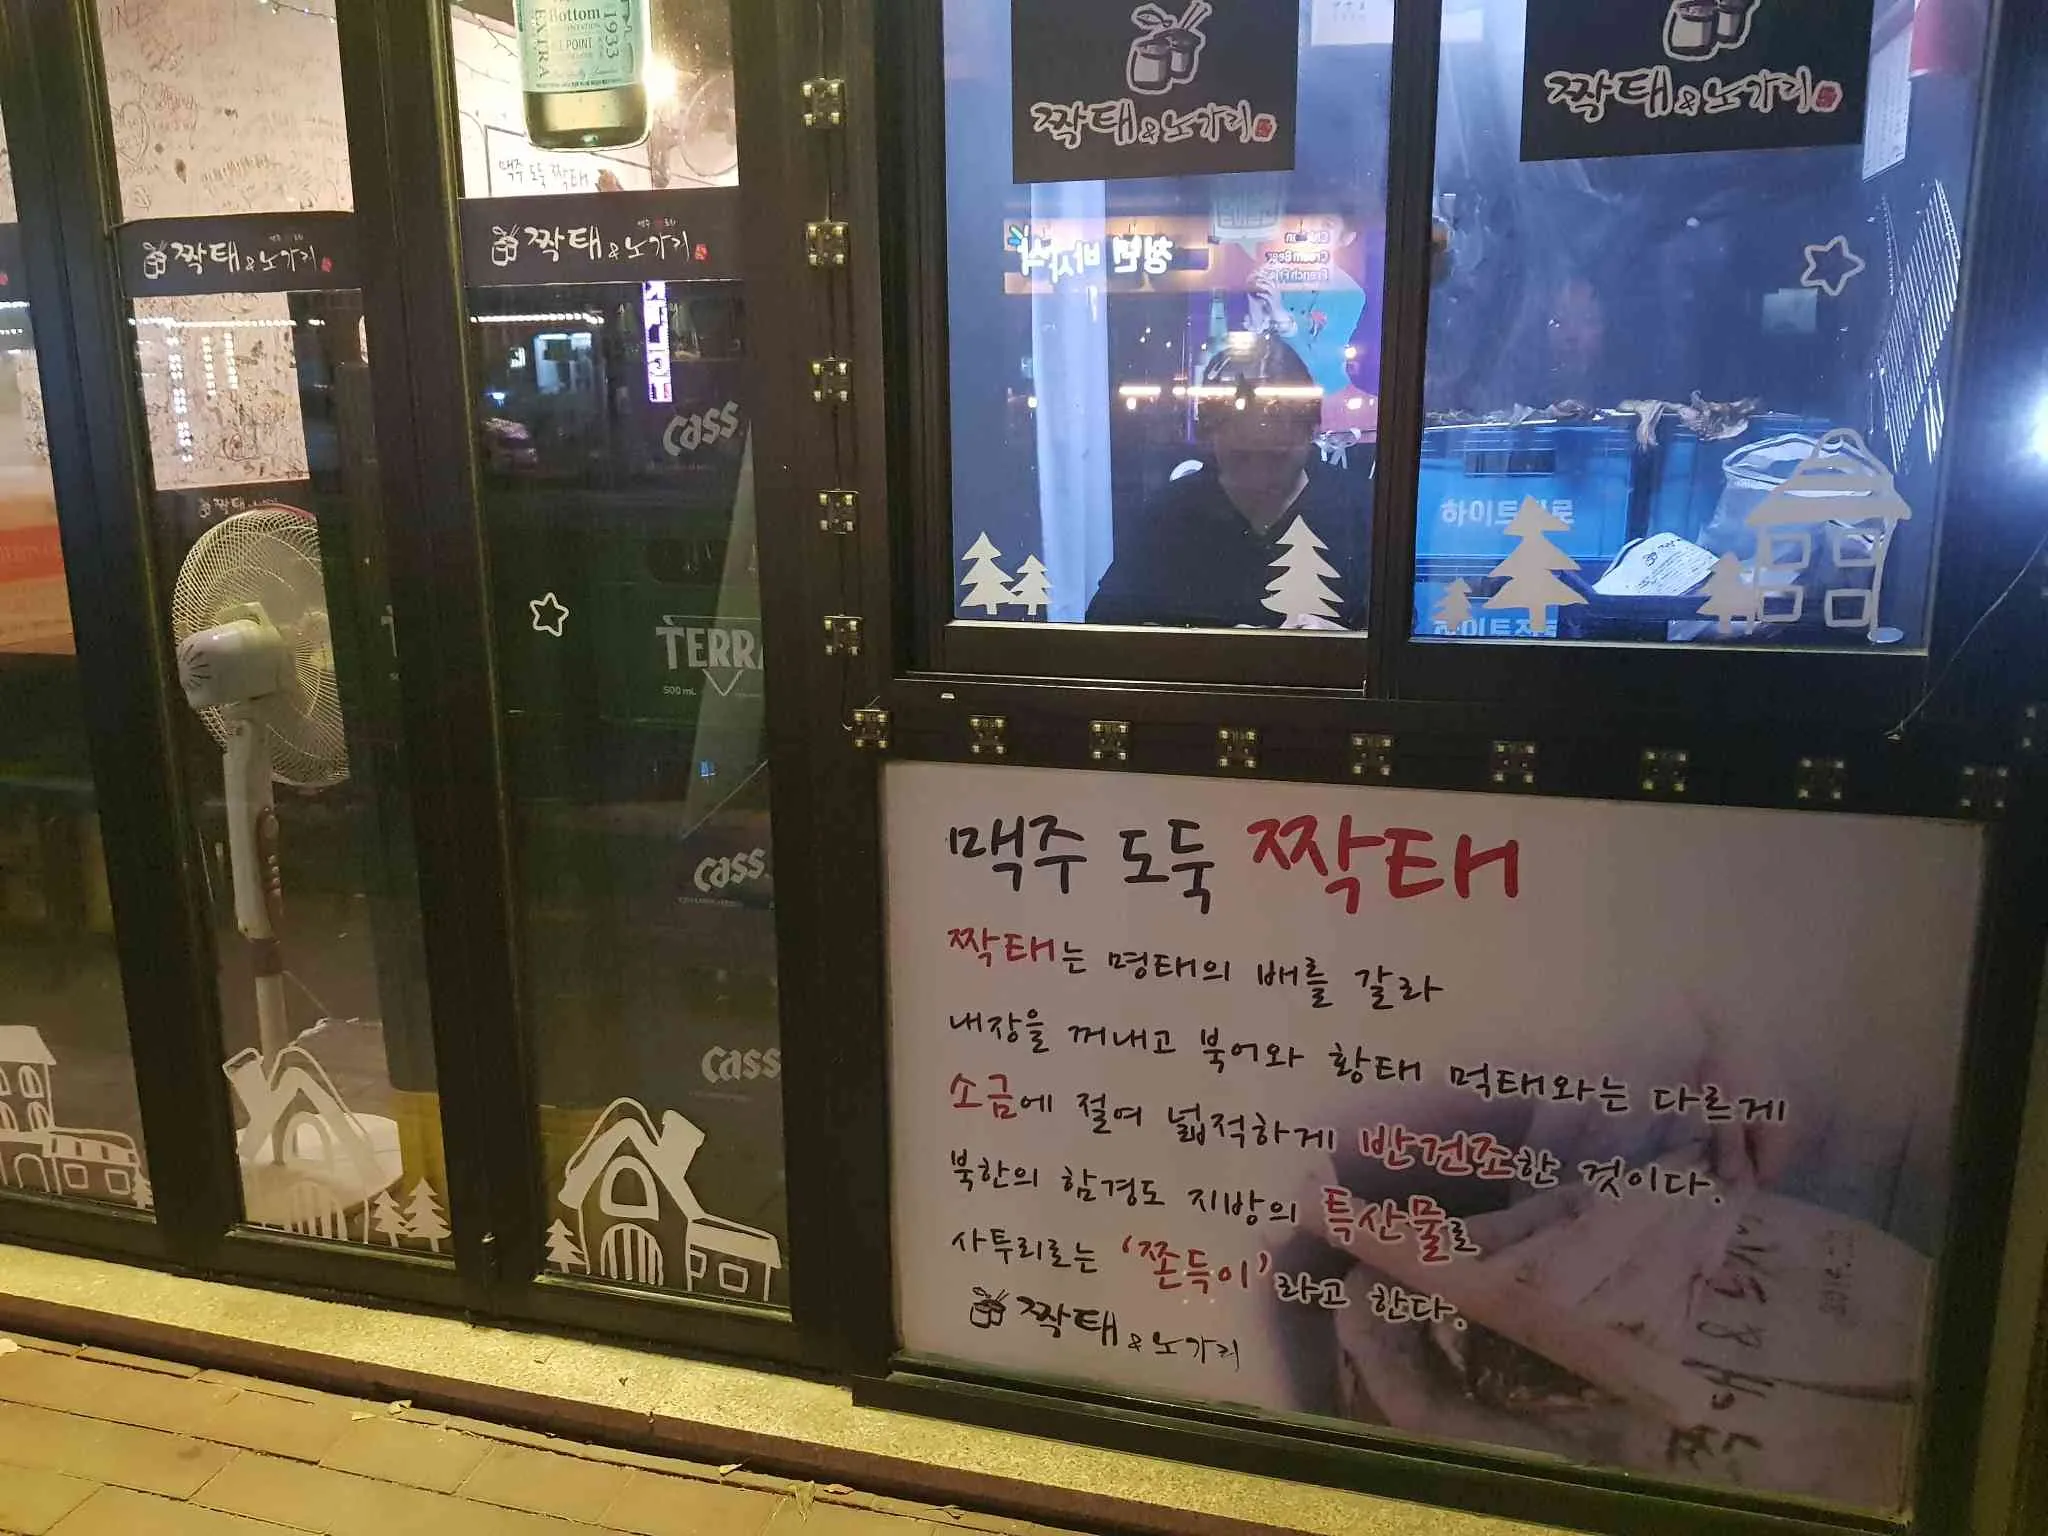 Bottom
EXTRA
1933
POINT
맥주 도둑 짝태
짝태&노가리
짝태&노가리
짝태&노가리
짝태&노가리
Cream Beer
Cass
TERRA
500 mL
Cass
Cass
하이트진로
맥주 도둑 짝태
짝태는 명태의 배를 갈라
내장을 꺼내고 북어와 황태 먹태와는 다르게
소금에 절여 넓적하게 반건조한 것이다.
북한의 함경도 지방의 특산물로
사투리로는 '쫀득이'라고 한다.
짝태&노가리